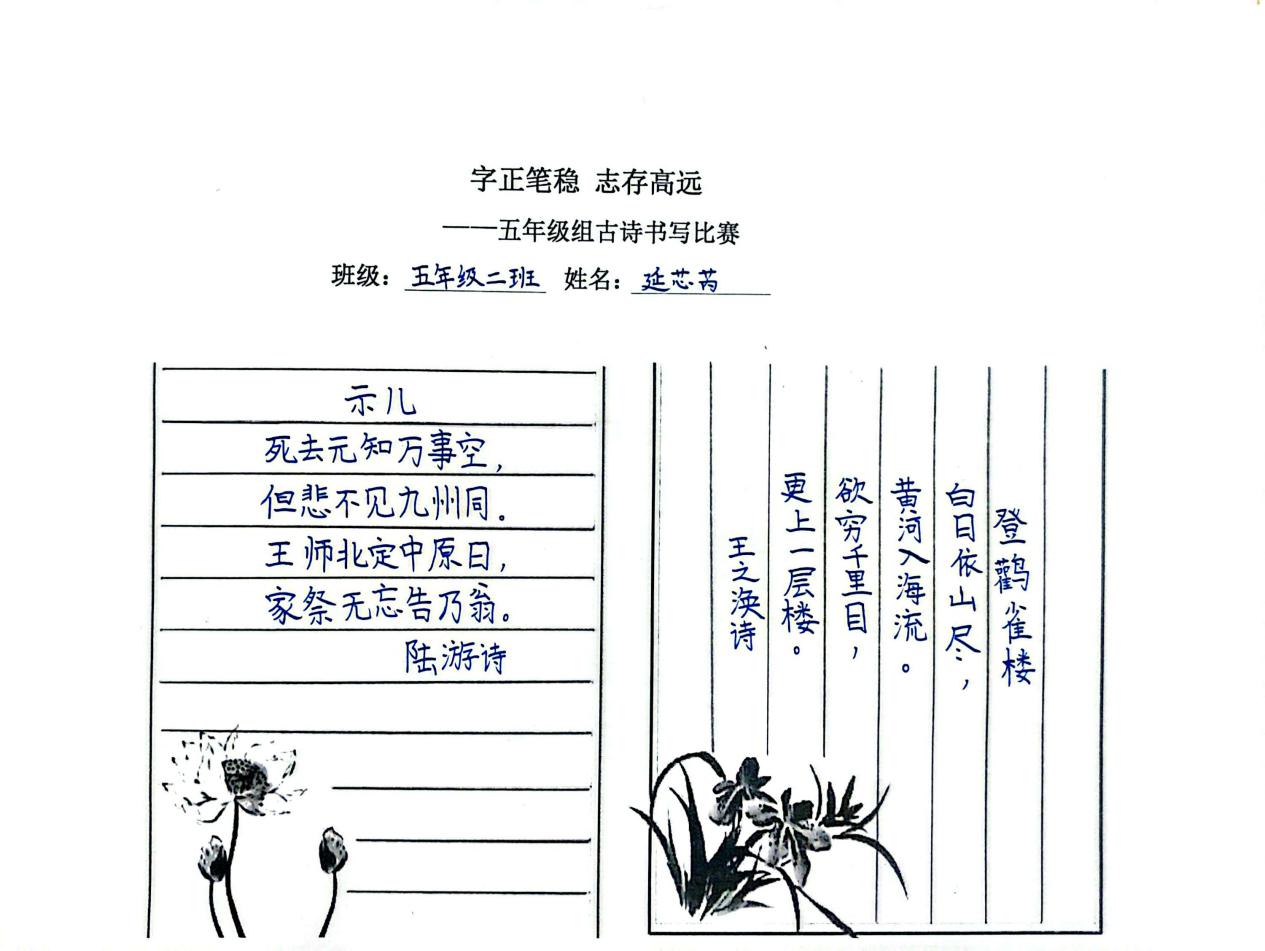 字正笔稳 志存高远
——五年级组古诗书写比赛
班级：五年级二班 姓名：延芯芮
示儿
死去元知万事空，
但悲不见九州同。
王师北定中原日，
家祭无忘告乃翁。
陆游诗
登鹳雀楼
白日依山尽，
黄河入海流。
欲穷千里目，
更上一层楼。
王之涣诗